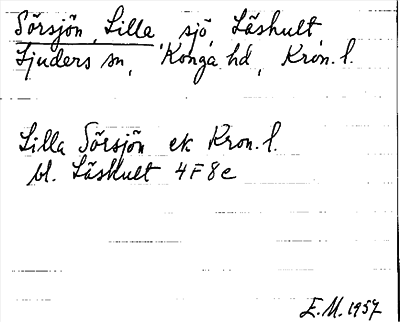 Sörsjön, Lilla, sjö, Läskult
Ljuders sn, Konga hd, Kron. l.
Lilla Sörsjön ek Kron. l.
bl. Läskult 4F8e
E.M. 1957